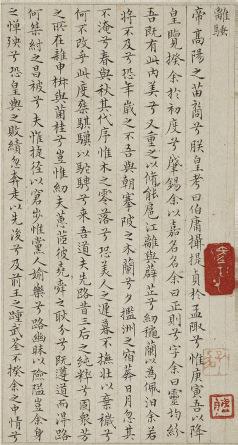 離騷
帝高陽之苗裔兮朕皇考曰伯庸攝提貞於孟陬兮惟庚寅吾以降
皇覽揆余於初度兮肇錫余以嘉名名余曰正則兮字余曰靈均紛
吾既有此內美兮又重之以脩能扈江離與辟芷兮紉穐蘭以為佩汩余若
將不及兮恐年歲之不吾與朝搴阰之木蘭兮夕擥洲之宿莽日月忽其
不淹兮春與秋其代序惟木之零落兮恐美人之遲暮不撫壯以棄穢兮
何不改乎此度椉騏驥以馳騁兮來吾道夫先路昔三后之純粹兮固衆芳
之所在雜申椒與菌桂兮豈惟紉夫蕙茝彼堯舜之耿介兮既遵道而得路
何桀紂之昌被兮夫惟捷徑以窘步惟黨人偷樂兮路幽昧以險隘豈余身
之憚殃兮恐皇輿之敗績忽奔走以先後兮及前王之踵武荃不揆余之中情兮